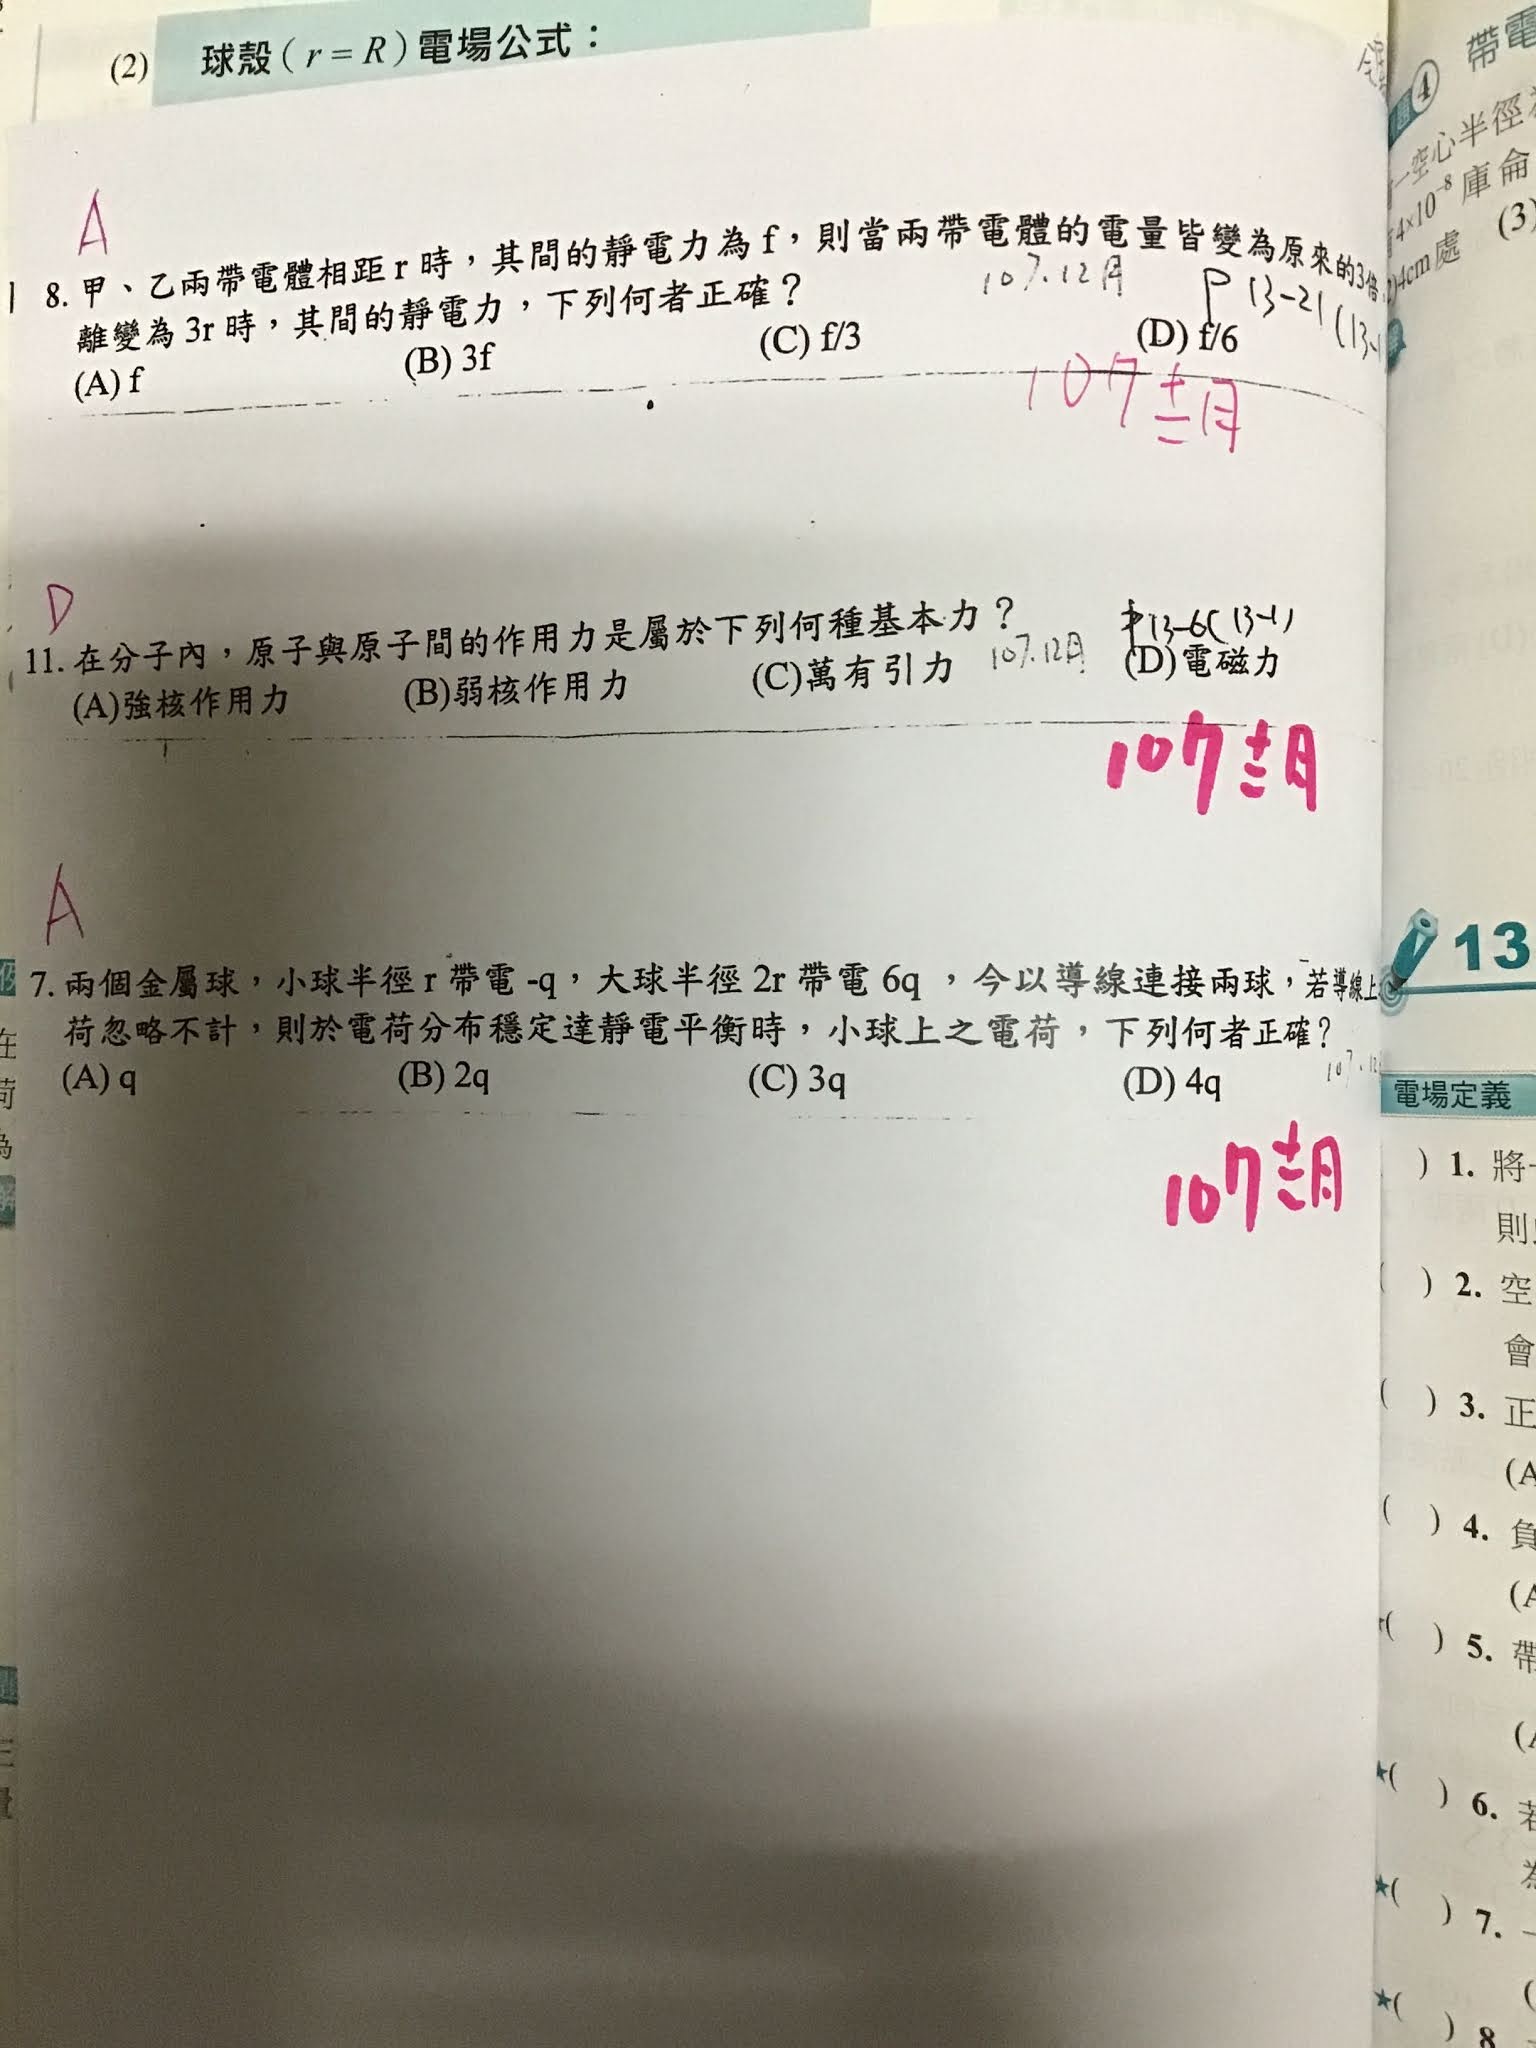 (2) 球殼(r=R)電場公式：
A
8. 甲、乙兩帶電體相距 r 時，其間的靜電力為 f，則當兩帶電體的電量皆變為原來的3倍
107.12月
P 13-21 (13-1
離變為 3r 時，其間的靜電力，下列何者正確？
(A) f (B) 3f (C) f/3 (D) f/6
107 十二月
D
11. 在分子內，原子與原子間的作用力是屬於下列何種基本力？
107.12月
P13-6( 13-1)
(A)強核作用力 (B)弱核作用力 (C)萬有引力 (D)電磁力
107 十二月
A
7. 兩個金屬球，小球半徑 r 帶電 -q，大球半徑 2r 帶電 6q ，今以導線連接兩球，若導線上
荷忽略不計，則於電荷分布穩定達靜電平衡時，小球上之電荷，下列何者正確？
(A) q (B) 2q (C) 3q (D) 4q
107.12
107 十二月
4 帶電
一空心半徑
4×10⁻⁸ 庫侖
4cm處 (3)
13
電場定義
) 1. 將
則
( ) 2. 空
會
( ) 3. 正
(A
( ) 4. 負
(A
( ) 5. 帶
★( ) 6. 若
為
★( ) 7.
★( ) 8
在
荷
為
解